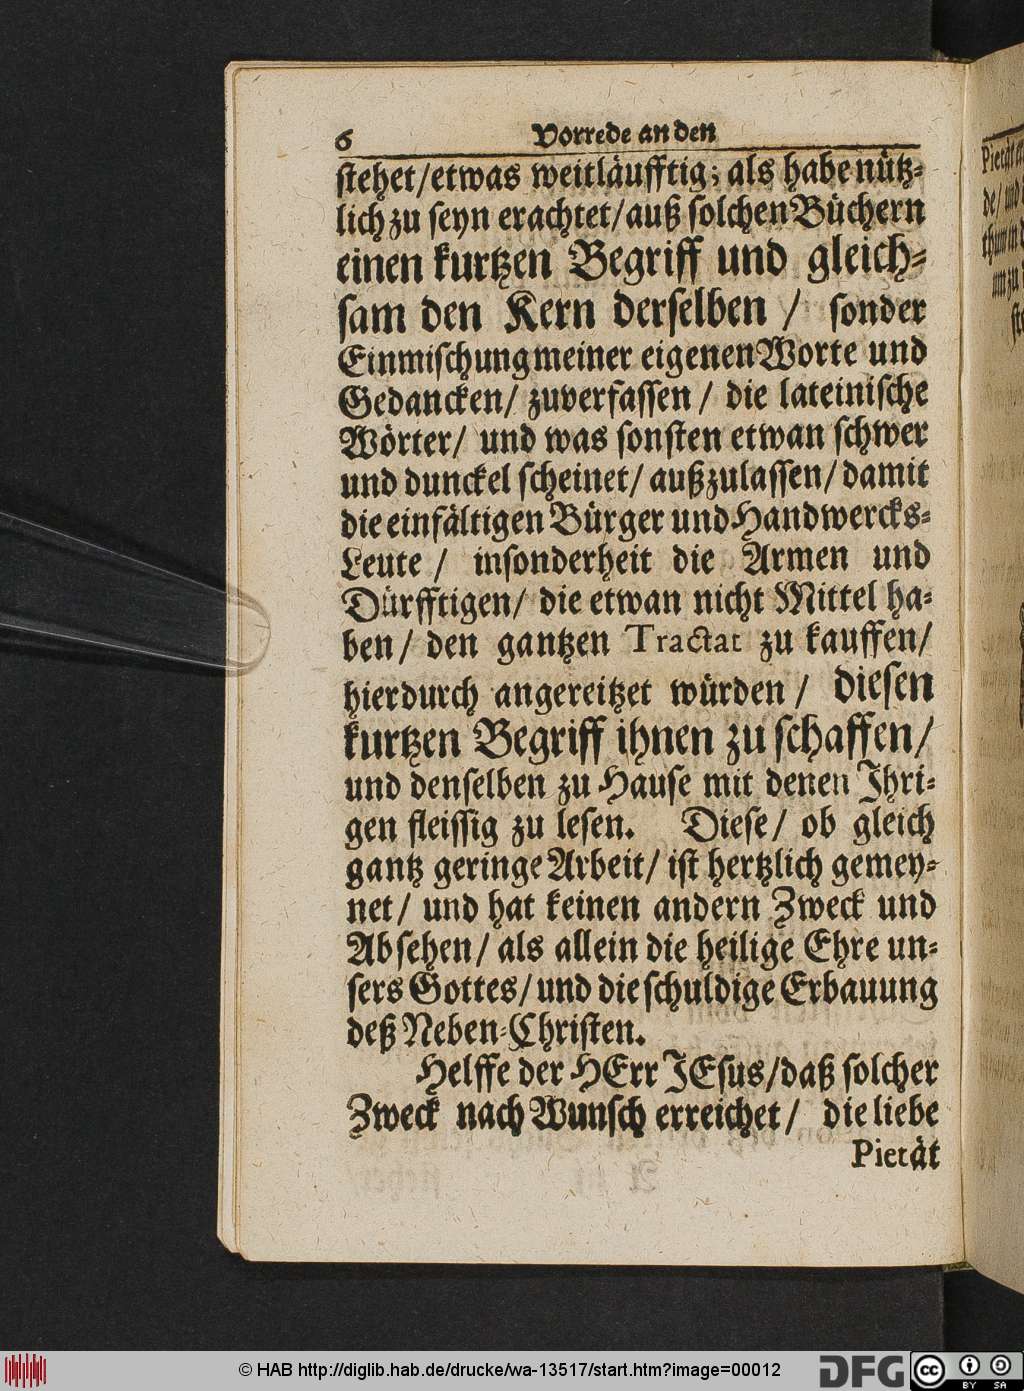 6 Vorrede an den
stehet/etwas weitläufftig; als habe nütz-
lich zu seyn erachtet/auß solchen Büchern
einen kurtzen Begriff und gleich-
sam den Kern derselben / sonder
Einmischung meiner eigenen Worte und
Gedancken/ zuverfassen / die lateinische
Wörter/ und was sonsten etwan schwer
und dunckel scheinet/ außzulassen/ damit
die einfältigen Bürger und Handwercks-
Leute / insonderheit die Armen und
Dürfftigen/ die etwan nicht Mittel ha-
ben/ den gantzen Tractat zu kauffen/
hierdurch angereitzet würden / diesen
kurtzen Begriff ihnen zu schaffen/
und denselben zu Hause mit denen Ihri-
gen fleissig zu lesen. Diese/ ob gleich
gantz geringe Arbeit/ ist hertzlich gemey-
net/ und hat keinen andern Zweck und
Absehen/ als allein die heilige Ehre un-
sers Gottes/ und die schuldige Erbauung
deß Neben-Christen.
Helffe der HErr JEsus/daß solcher
Zweck nach Wunsch erreichet/ die liebe
Pietät
© HAB http://diglib.hab.de/drucke/wa-13517/start.htm?image=00012
DFG
cc BY SA